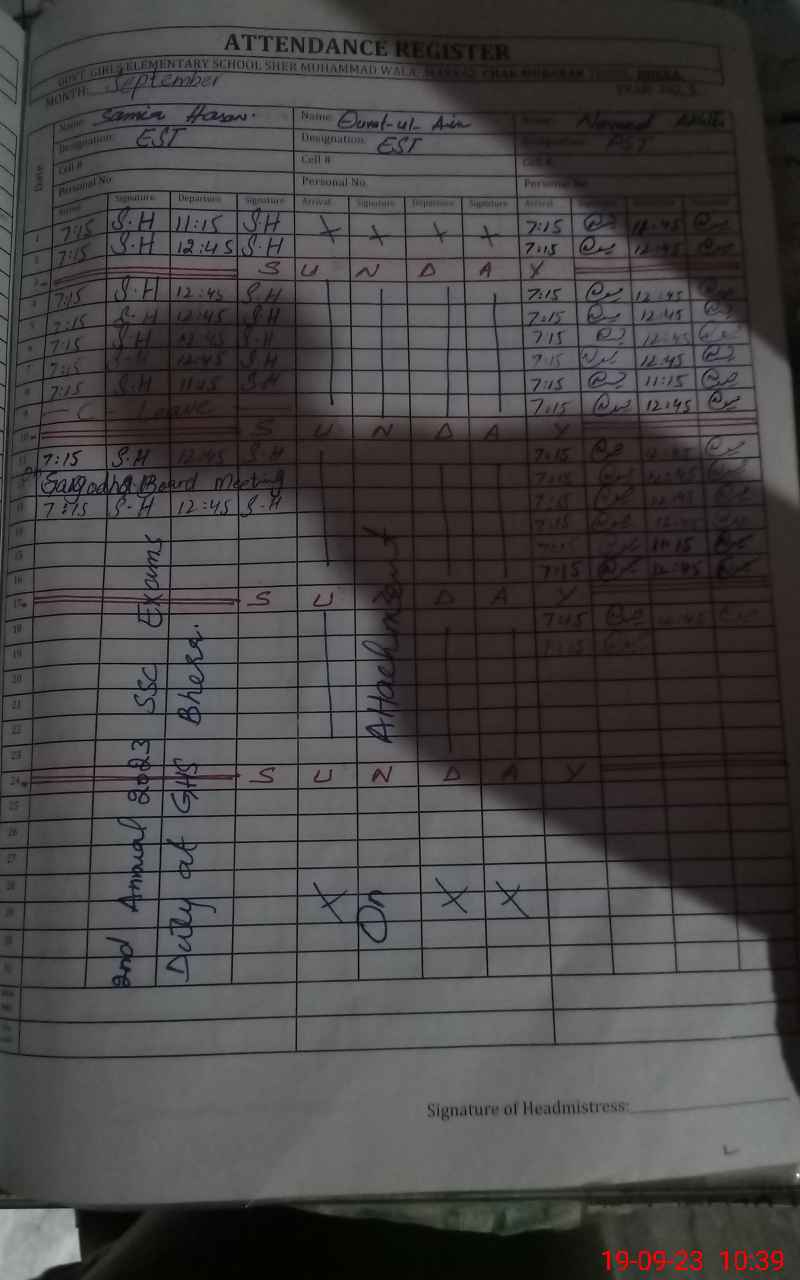 ATTENDANCE REGISTER
GOVT. GIRLS ELEMENTARY SCHOOL SHER MUHAMMAD WALA, MARKAZ CHAK MUBARAK
MONTH: September
Name: Samia Hasan. Name: Qurat-ul-Ain
Designation: EST Designation: EST
Cell # Cell # Cell #
Personal No Personal No Personal No
Date
Signature Departure Signature Arrival Signature Departure Signature Arrival
1 7:15 S.H 11:15 S.H X X X X 7:15
2 7:15 S.H 12:45 S.H 7:15 12:45
3 S U N D A Y
4 7:15 S.H 12:45 S.H 7:15 12:45
5 7:15 S.H 12:45 S.H 7:15 12:45
6 7:15 S.H 12:45 S.H 7:15 12:45
7 7:15 S.H 12:45 S.H 7:15 12:45
8 7:15 S.H S.H 7:15 11:15
9 C - Leave 7:15 12:45
10 S U N D A Y
11 7:15 S.H 12:45 S.H 7:15 12:45
12 Sargodha Board Meeting 7:15 12:45
13 7:15 S.H 12:45 S.H 7:15 12:45
14 7:15 12:45
15 7:15 11:15
16 7:15 12:45
17 S U N D A Y
18 7:15 12:45
19 7:15
20
21
22
23
24 S U N D A Y
25
26
27
28
29 X X X
30
31
2nd Annual 2023 SSC Exams
Duty at GHS Bhera.
On Attachment
Signature of Headmistress:
19-09-23 10:39